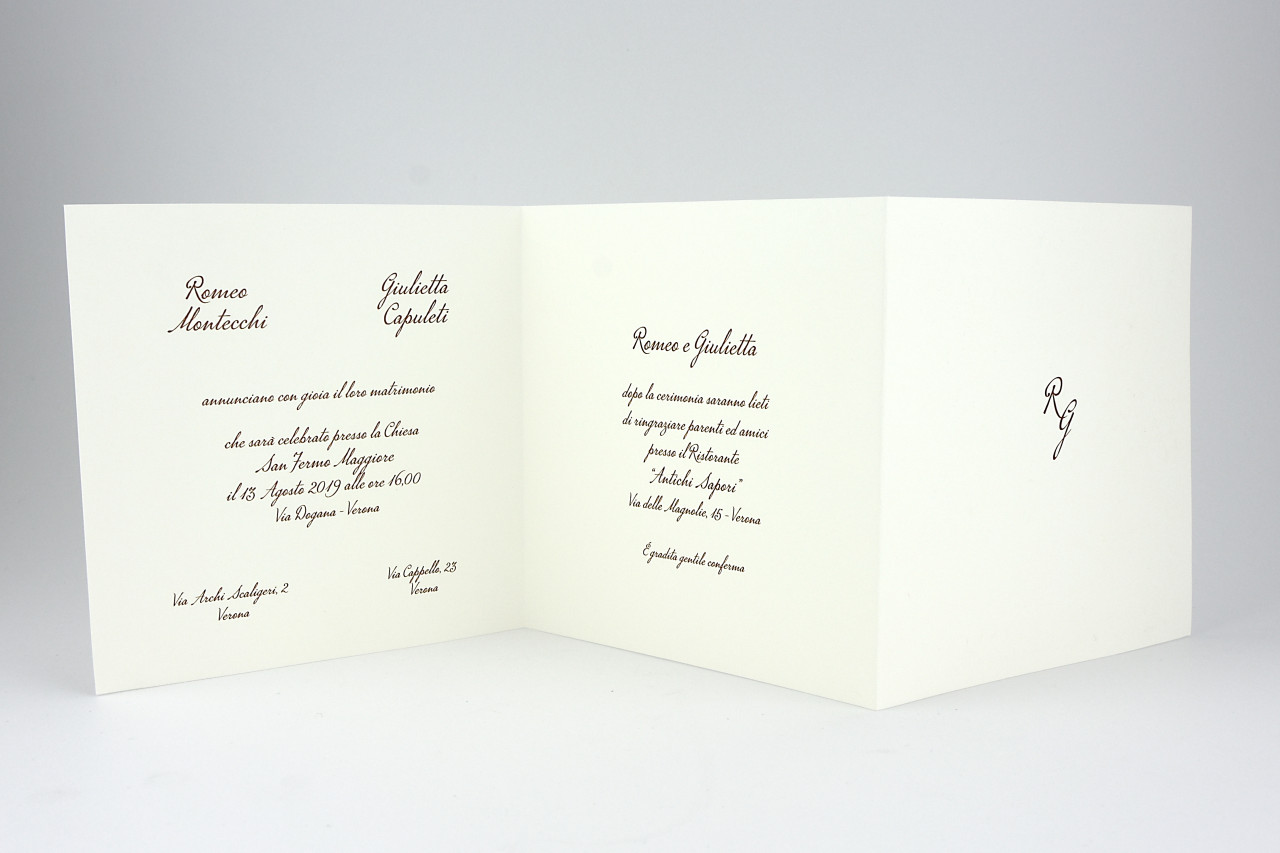 Romeo
Montecchi
Giulietta
Capuleti
annunciano con gioia il loro matrimonio
che sarà celebrato presso la Chiesa
San Fermo Maggiore
il 13 Agosto 2019 alle ore 16,00
Via Dogana - Verona
Via Archi Scaligeri, 2
Verona
Via Cappello, 23
Verona
Romeo e Giulietta
dopo la cerimonia saranno lieti
di ringraziare parenti ed amici
presso il Ristorante
“Antichi Sapori”
Via delle Magnolie, 15 - Verona
È gradita gentile conferma
R
G